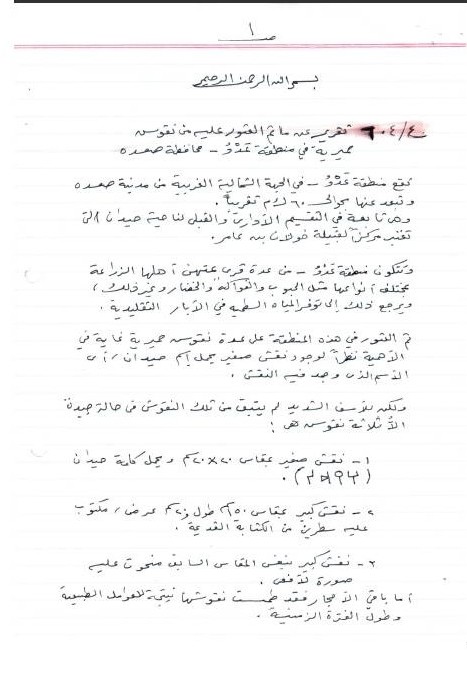 ص ١
بسم الله الرحمن الرحيم
٤٠٤/٤ تقرير عن ما تم العثور عليه من نقوس
حميرية في منطقة غدْوْ - محافظة صعده
تقع منطقة غدْوْ - في الجهة الشمالية الغربية من مدينة صعده
وتبعد عنها بحوالي ٦٠ ك.م تقريباً.
وهي تابعة في التقسيم الأداري والقبلي لناحية حيدان التي
تعتبر مركز القبيلة خولان بن عامر.
وتتكون منطقة غدْوْ - من عدة قرى يمتهن أهلها الزراعة
بمختلف أنواعها مثل الحبوب والفواكة والخضار وغير ذلك /
ويرجع ذلك إلى توفر المياه السطحية في الآبار التقليدية.
تم العثور في هذه المنطقة على عدة نقوس حميرية غاية في
الأهمية نظراً لوجود نقش صغير يحمل إسم حيدان / أي
الأسم الذي وجد فيه النقش.
ولكن للأسف الشديد لم يتبقى من تلك النقوش في حالة جيدة
الأ ثلاثة نقوس هي:
١- نقش صغير بمقاس ٢٠×٢٠سم ويحمل كلمة حيدان
٢- نقش كبير بمقاس ٥٠سم طول و٢٠سم عرض / مكتوب
عليه سطرين من الكتابة القديمة.
٣- نقش كبير بنفس المقاس السابق منحوت عليه
صورة للأفعى.
أما باقي الأحجار فقد طمست نقوشها نتيجة للعوامل الطبيعية
وطول الفترة الزمنية.